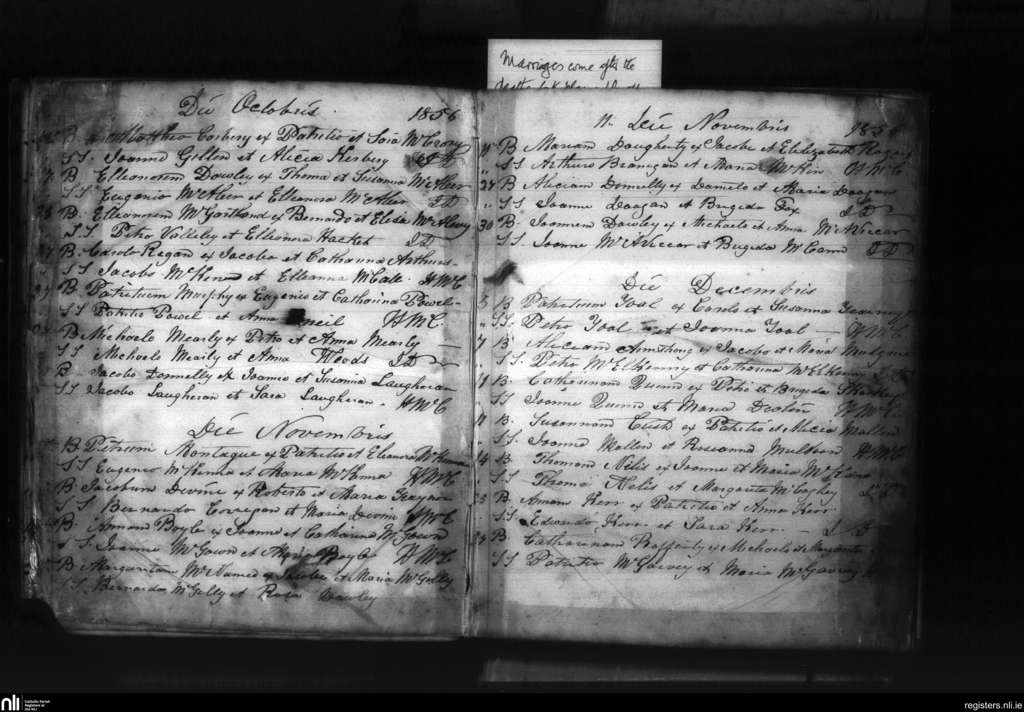 Marriages come after the
Die Octobris. 1856
B Mattheo Corbery ex Patritio et Sara McCrory
SS. Joanne Gillen et Alicia Kerbery
B Elleonorem Dowley ex Thoma et Susanna McAleer
SS Eugenio McAleer et Elleonora McAleer JD
B. Elleonorem McGartland ex Bernardo et Elela McAleavy
SS Petro Vallely et Elleonora Hacket JD
B. Carolo Regan ex Jacobo et Catharina Arthurs
SS Jacobo McKenna et Elleanna McCale HMC
B Patritium Murphy ex Eugenio et Catharina Powel
SS Patritio Powel et Anna neil HMC.
B Michaele Mearly ex Petro et Anna Mearly
SS Michaele Mearly et Anna Woods JD
B Jacobo Donnelly ex Joanne et Susanna Laugheran
SS Jacobo Laugheran et Sara Laugheran. HMC
Die Novembris
B Petrum Montague ex Patritio et Eleanora McKenna
SS Eugenio McKenna et Maria McKenna HMC
B Jacobum Devine ex Roberto et Maria
SS Bernardo Corregan et Maria Devin HMC
B. Annam Boyle ex Joanne et Catharina McGown
SS. Joanne McGown et Boyle HMC
B Margaritam McNamee ex et Maria McGilly
SS Bernardo McGilly et Rosa Dowley
11. Die Novembris 1856
B Mariam Daugherty ex Jacobo et Elelizabeth Ragan
SS Arthuro Branigan et Maria McKen HMC
27 B Aliciam Donnelly ex Daniele et Maria Daagan
SS Joanne Daagan et Brigida Fox JD
30 B Joannem Dowley ex Michaele et Anna McAvicar
SS. Joanne McAvicar et Brigida McCann JD
Die Decembris
5 B Patritium Toal ex Carolo et Susanna
SS. Petro Toal et Joanna Toal HMC
7 B Aliciam Armstrong ex Jacobo et Maria
SS. Petro McElhenny et Catharina McElhenny
B. Catharinam Quinn ex Petro et Brigida
SS Joanne Quinn et Maria Devlin HMC
11 B. Susannam Cush ex Patritio et Alicia Mallen
SS. Joanne Mallen et Roseanna Muldoon HMC
14 B Thomam Nelis ex Joanne et Maria
SS. Thoma Nelis et Margarita McCaghey
B Annam Kerr ex Patritio et Anna Kerr
SS. Edwardo Kerr et Sara Kerr JD
25 B Catharinam Rafferty ex Michaele et Margarita
SS Patritio McGarvey et Maria McGarvey
nli Catholic Parish Registers at the NLI
registers.nli.ie